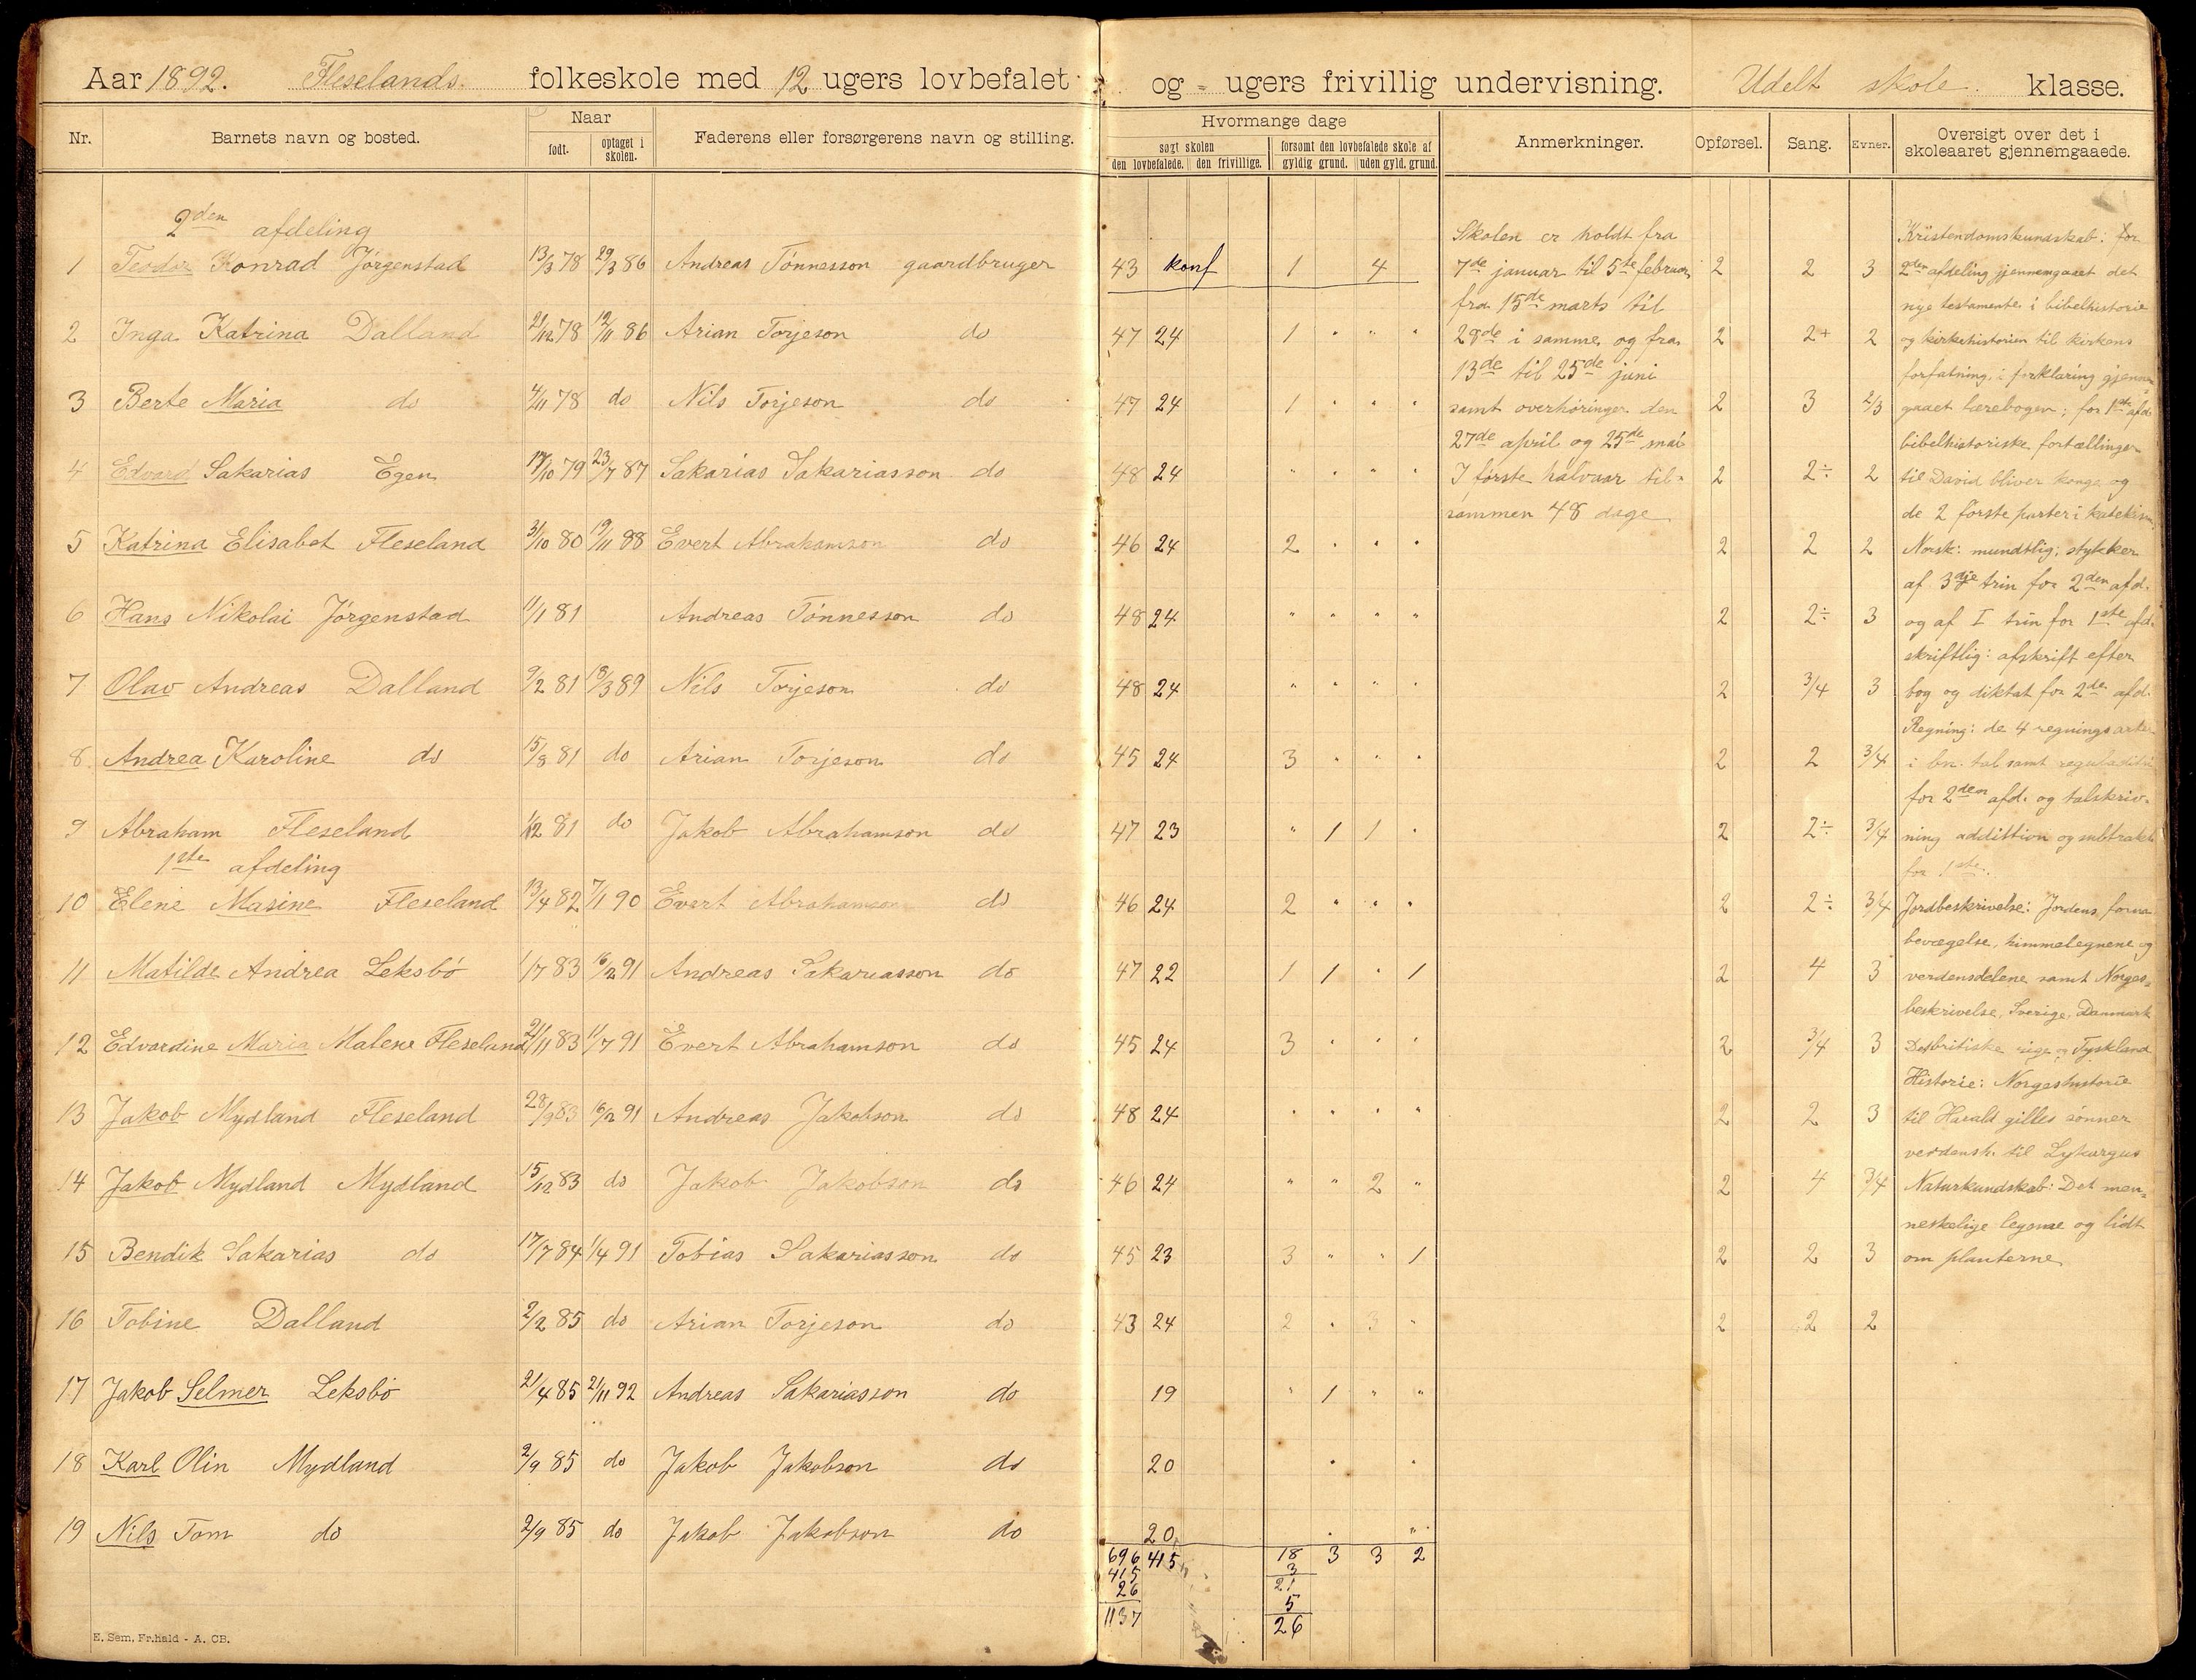 Aar 1892. Fleselands. folkeskole med 12 ugers lovbefalet og = ugers frivillig undervisning. Udelt skole. klasse.
Nr. Barnets navn og bosted. Naar født. optaget i skolen. Faderens eller forsørgerens navn og stilling. Hvormange dage søgt skolen den lovbefalede. den frivillige. forsømt den lovbefalede skole af gyldig grund. uden gyld. grund. Anmerkninger. Opførsel. Sang. Evner. Oversigt over det i skoleaaret gjennemgaaede.
2den afdeling
1 Teodor Konrad Jørgenstad 13/3 78 29/3 86 Andreas Tønnesson gaardbruger 43 konf 1 4 2 2 3
2 Inga Katrina Dalland 21/12 78 12/11 86 Arian Torjeson do 47 24 1 " " " 2 2+ 2
3 Berte Maria do 4/11 78 do Nils Torjeson do 47 24 1 " " " 2 3 2/3
4 Edvard Sakarias Egen 17/10 79 23/7 87 Sakarias Sakariasson do 48 24 " " " " 2 2÷ 2
5 Katrina Elisabet Fleseland 3/10 80 19/11 88 Evert Abrahamson do 46 24 2 " " " 2 2 2
6 Hans Nikolai Jørgenstad 11/1 81 Andreas Tønnesson do 48 24 " " " " 2 2÷ 3
7 Olav Andreas Dalland 9/2 81 18/3 89 Nils Torjeson do 48 24 " " " " 2 3/4 3
8 Andrea Karoline do 15/8 81 do Arian Torjeson do 45 24 3 " " " 2 2 3/4
9 Abraham Fleseland 1/12 81 do Jakob Abrahamson do 47 23 " 1 1 " 2 2÷ 3/4
1ste afdeling
10 Elene Masine Fleseland 13/4 82 7/1 90 Evert Abrahamson do 46 24 2 " " " 2 2÷ 3/4
11 Matilde Andrea Leksbø 1/7 83 16/2 91 Andreas Sakariasson do 47 22 1 1 " 1 2 4 3
12 Edvardine Maria Malene Fleseland 21/11 83 11/7 91 Evert Abrahamson do 45 24 3 " " " 2 3/4 3
13 Jakob Mydland Fleseland 28/9 83 16/2 91 Andreas Jakobson do 48 24 " " " " 2 2 3
14 Jakob Mydland Mydland 15/12 83 do Jakob Jakobson do 46 24 " " 2 " 2 4 3/4
15 Bendik Sakarias do 17/7 84 1/4 91 Tobias Sakariasson do 45 23 3 " " 1 2 2 3
16 Tobine Dalland 2/2 85 do Arian Torjeson do 43 24 2 " 3 " 2 2 2
17 Jakob Selmer Leksbø 21/4 85 21/11 92 Andreas Sakariasson do 19 " 1 " "
18 Karl Olin Mydland 2/9 85 do Jakob Jakobson do 20 " "
19 Nils Tom do 2/9 85 do Jakob Jakobson do 20 " "
696 415 18 3 3 2
415 3
26 21
5
1137 26
Skolen er holdt fra
7de januar til 5te februar,
fra 15de marts til
28de i samme og fra
13de til 25de juni
samt overhøringer den
27de april og 25de mai
I første halvaar til-
sammen 48 dage
Kristendomskundskab: for
2den afdeling gjennemgaaet det
nye testamente i bibelhistorie
og kirkehistorien til kirkens
forfatning, i forklaring gjennem-
gaaet lærebogen; for 1ste afd.
bibelhistoriske fortællinger
til David bliver konge og
de 2 første parter i katekism.
Norsk: mundtlig: stykker
af 3dje trin for 2den afd.
og af I trin for 1ste afd.
skriftlig: afskrift efter
bog og diktat for 2den afd.
Regning: de 4 regningsarter
i bn. tal samt
for 2den afd. og talskriv-
ning addittion og subtrakt.
for 1ste.
Jordbeskrivelse: Jordens form
bevægelse, himmelegnene og
verdensdelene samt Norges-
beskrivelse, Sverige, Danmark
Det britiske rige og Tyskland
Historie: Norgeshistorie
til Harald gilles sønner
verdensh. til Lykurgus
Naturkundskab: Det men-
neskelige legeme og lidt
om planterne
E. Sem, Fr.hald - A. CB.